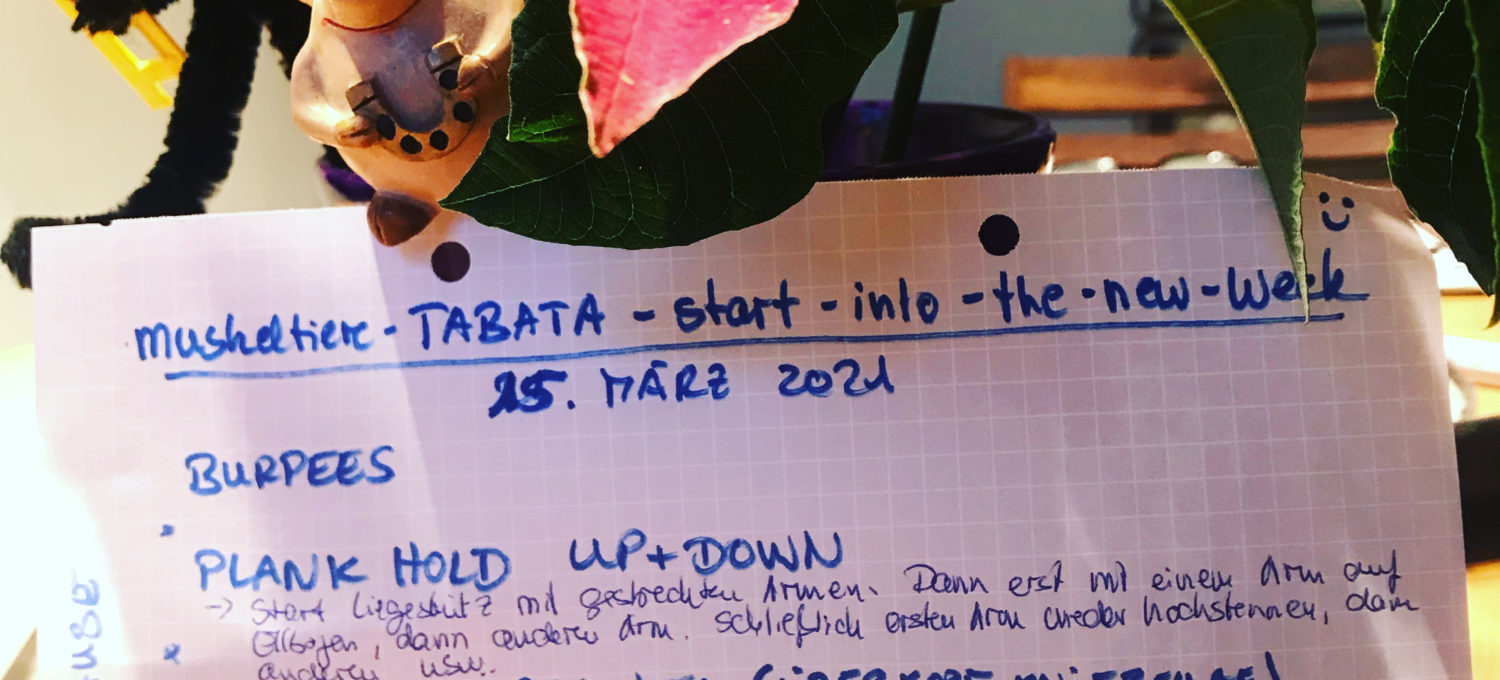 :)
muskeltiere - TABATA - start - into - the - new - week
15. MÄRZ 2021
BURPEES
*
PLANK HOLD UP + DOWN
-> Start Liegestütz mit gestreckten Armen. Dann erst mit einem Arm auf
* Ellbogen, dann anderen Arm. Schließlich ersten Arm wieder hochstemmen, dann
anderen usw.